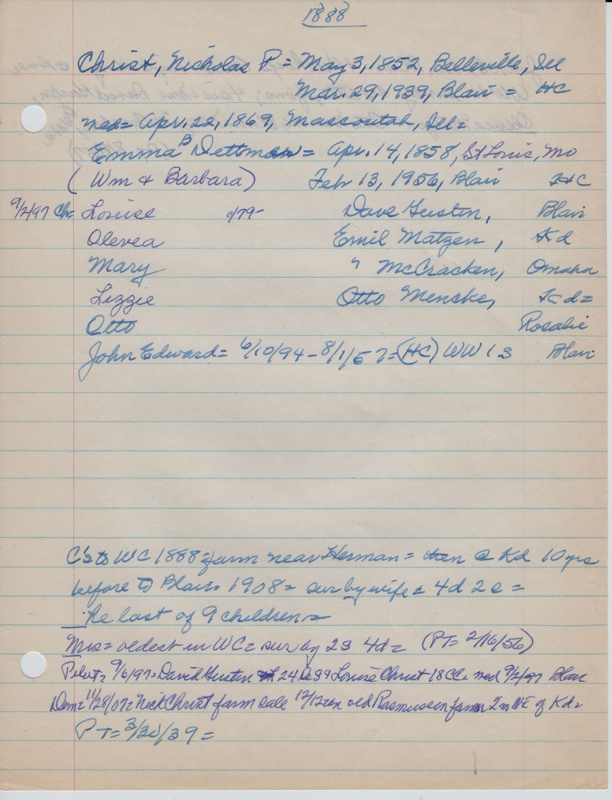 1888
Christ, Nicholas P = May 3, 1852, Belleville, Ill
Mar. 29, 1939, Blair = HC
med = Apr. 22, 1869, Mascoutah, Ill =
Emma B Dettman = Apr. 14, 1858, St Louis, Mo
(Wm & Barbara) Feb 13, 1956, Blair HC
9/2/97 Ch: Louise d79- Dave Gustin, Blair
Olevea Emil Matzen, Kd
Mary " McCracken, Omaha
Lizzie Otto Menske, Kd =
Otto Rosalie
John Edward = 6/10/94 - 8/1/57 = (HC) WW1 S Blair
C's to WC 1888 = farm near Herman = then @ Kd 10 yrs
before to Blair. 1908 = sur by wife & 4d 2s =
The last of 9 children =
Mrs = oldest in WC = sur by 2S 4d = (PT = 2/16/56)
Pilot = 9/6/97 = David Gustin 24 & Louise Christ 18 CC = med 9/2/97 Blair
Dem = 11/28/07 = Nick Christ farm sale 12/12 on old Rasmussen farm 2m NE of Kd =
PT = 3/30/39 =